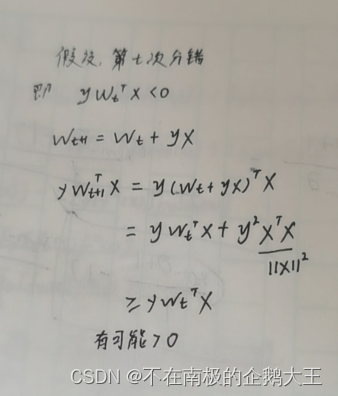 假设,第t次分错
即 yWₜᵀX<0
Wₜ₊₁ = Wₜ + yX
yWₜ₊₁ᵀX = y(Wₜ+yX)ᵀX
= yWₜᵀX + y²XᵀX
||X||²
≥ yWₜᵀX
有可能>0
CSDN @不在南极的企鹅大王